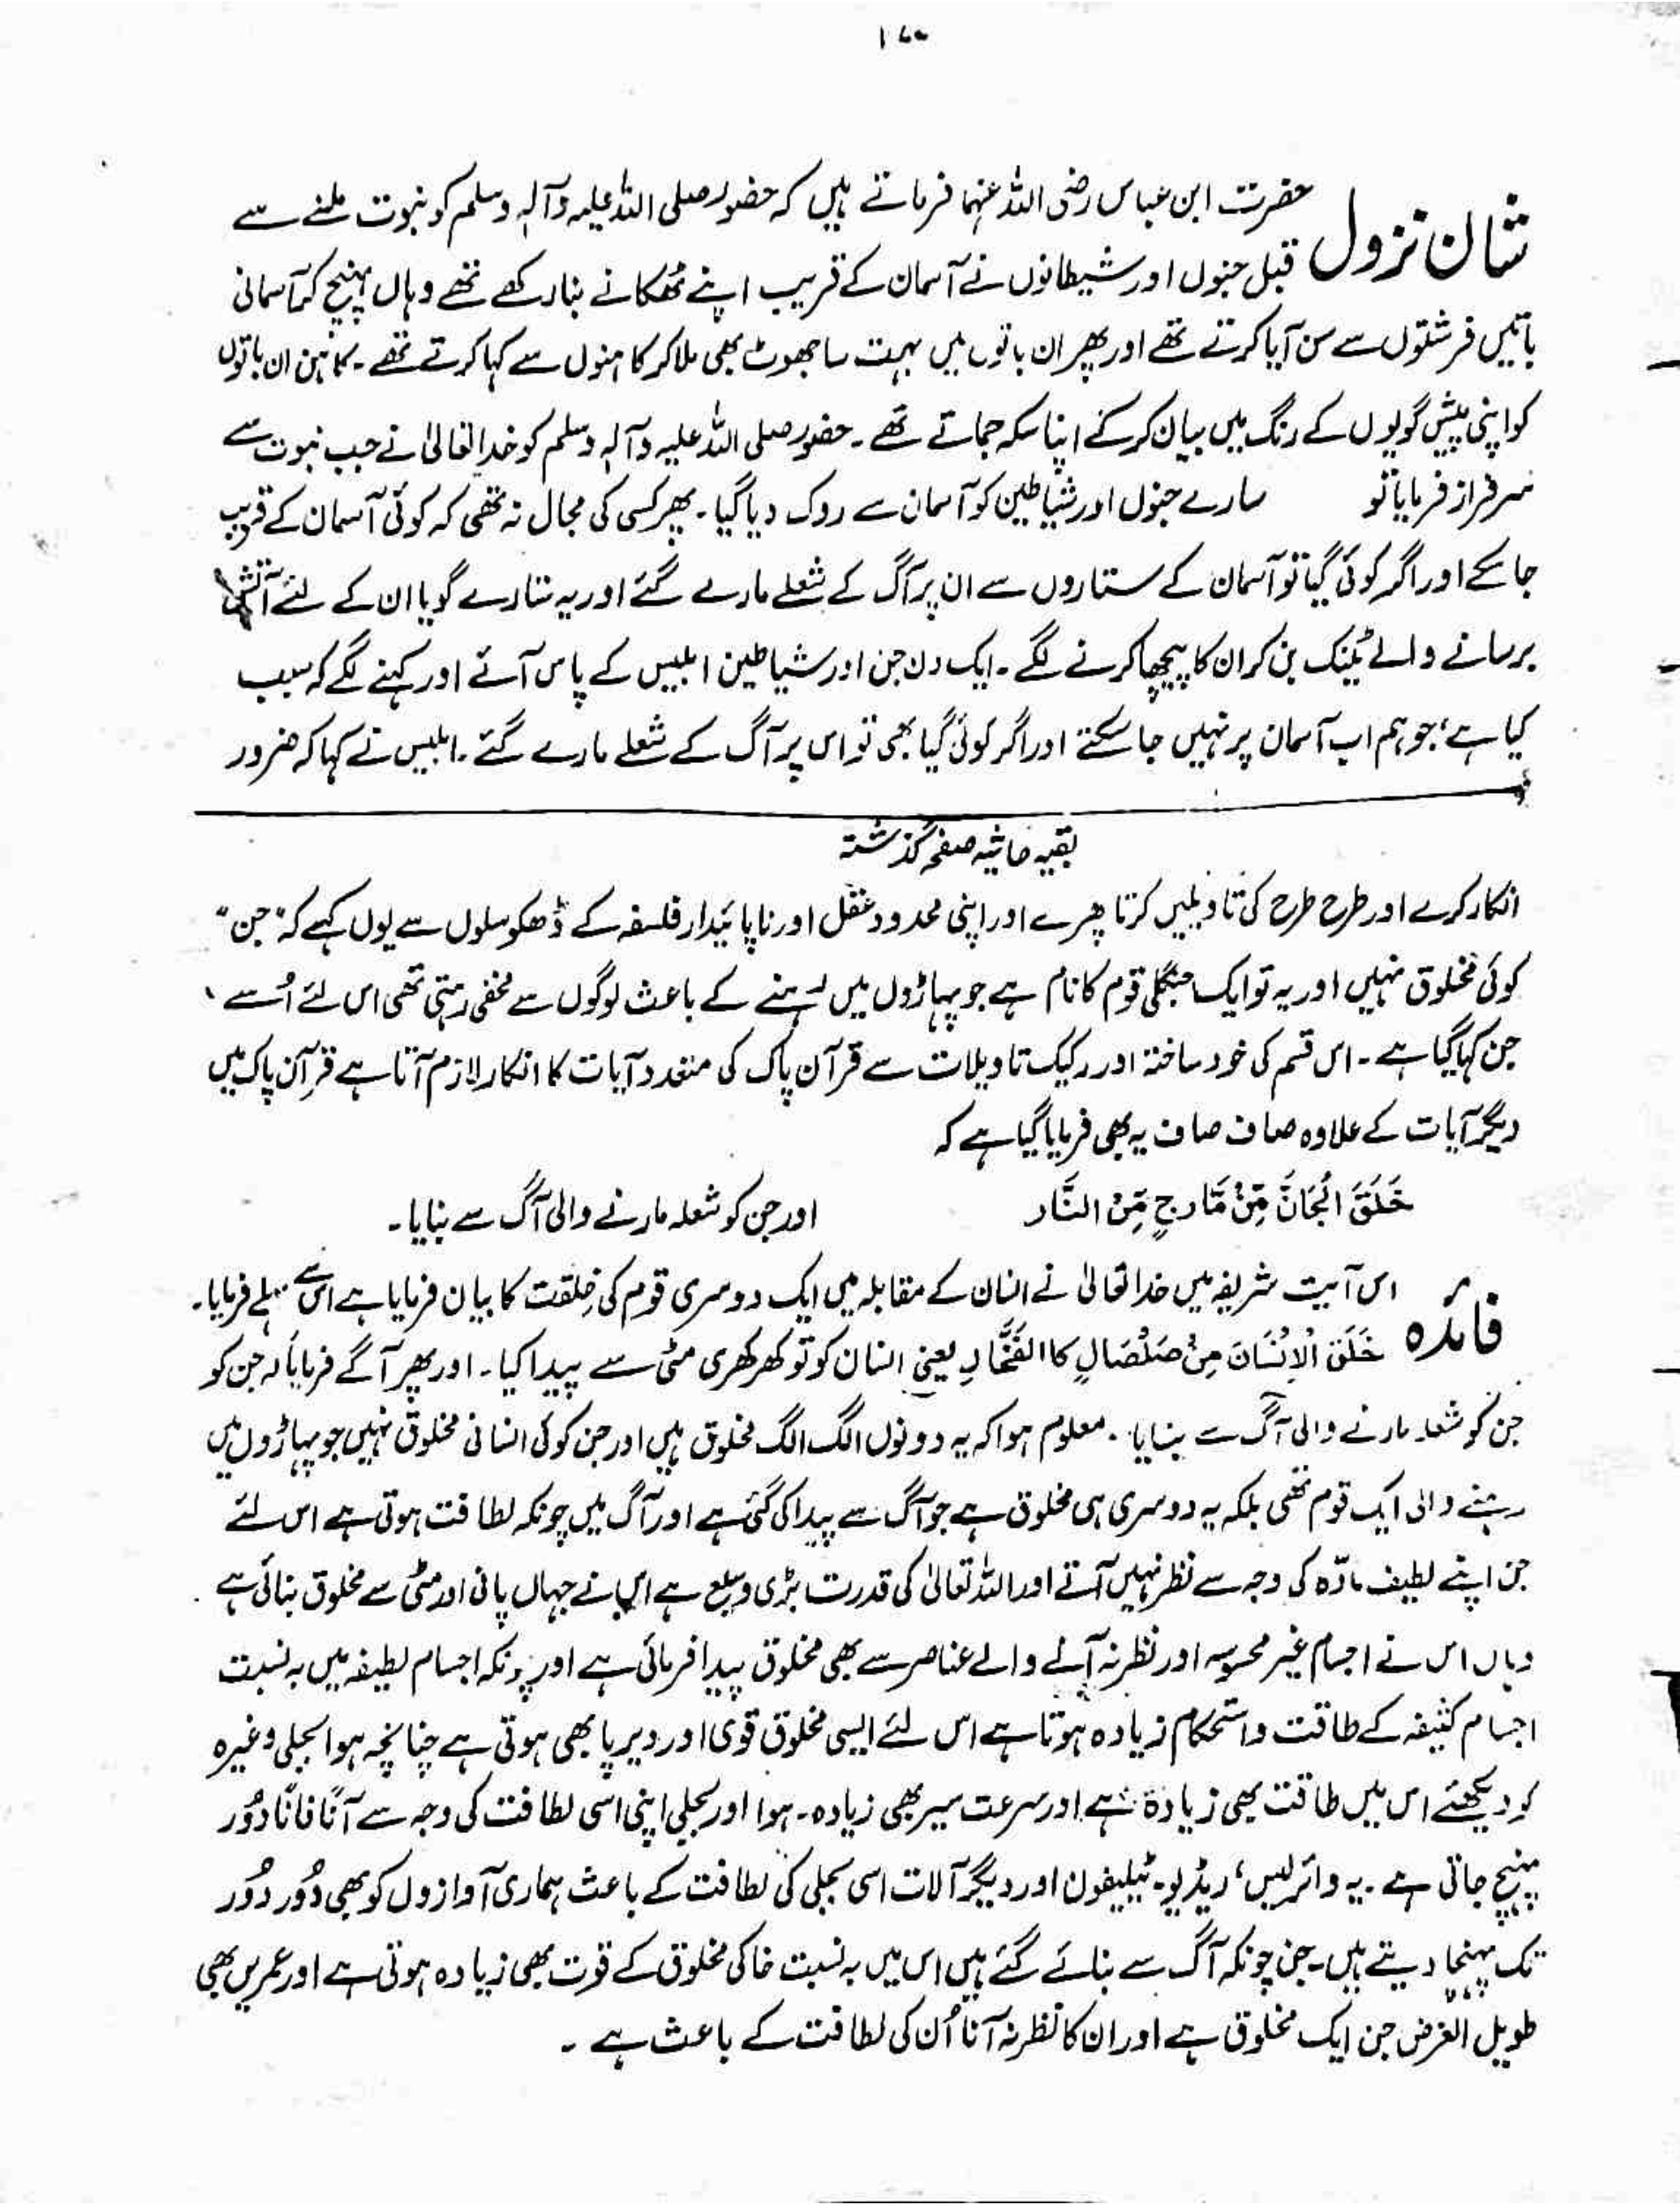 شان نزول حضرت ابن عباس رضی اللہ عنہما فرماتے ہیں کہ حضور صلی اللہ علیہ وآلہٖ وسلم کو نبوت ملنے سے
قبل جنوں اور شیطانوں نے آسمان کے قریب اپنے ٹھکانے بنا رکھے تھے وہاں پہنچ کر آسمانی
باتیں فرشتوں سے سن آیا کرتے تھے اور پھر ان باتوں میں بہت سا جھوٹ بھی ملا کر کاہنوں سے کہا کرتے تھے۔ کاہن ان باتوں
کو اپنی پیش گوئیوں کے رنگ میں بیان کر کے اپنا سکہ جماتے تھے۔ حضور صلی اللہ علیہ وآلہٖ وسلم کو خدا تعالیٰ نے جب نبوت سے
سرفراز فرمایا تو سارے جنوں اور شیاطین کو آسمان سے روک دیا گیا۔ پھر کسی کی مجال نہ تھی کہ کوئی آسمان کے قریب
جا سکے اور اگر کوئی گیا تو آسمان کے ستاروں سے ان پر آگ کے شعلے مارے گئے اور یہ ستارے گویا ان کے لئے آتش
برسانے والے ٹینک بن کر ان کا پیچھا کرنے لگے۔ ایک دن جن اور شیاطین ابلیس کے پاس آئے اور کہنے لگے کہ سبب
کیا ہے، جو ہم اب آسمان پر نہیں جا سکتے اور اگر کوئی گیا بھی تو اس پر آگ کے شعلے مارے گئے۔ ابلیس نے کہا کہ ضرور
بقیہ حاشیہ صفحہ گذشتہ
انکار کرے اور طرح طرح کی تاویلیں کرتا پھرے اور اپنی محدود عقل اور ناپائیدار فلسفہ کے ڈھکوسلوں سے یوں کہے کہ "جن"
کوئی مخلوق نہیں اور یہ تو ایک جنگلی قوم کا نام ہے جو پہاڑوں میں رہنے کے باعث لوگوں سے مخفی رہتی تھی اس لئے اُسے
جن کہا گیا ہے۔ اس قسم کی خود ساختہ اور رکیک تاویلات سے قرآن پاک کی متعدد آیات کا انکار لازم آتا ہے قرآن پاک میں
دیگر آیات کے علاوہ صاف صاف یہ بھی فرمایا گیا ہے کہ
خَلَقَ الْجَانَّ مِنْ مَّارِجٍ مِّنَ النَّار اور جن کو شعلہ مارنے والی آگ سے بنایا۔
فائدہ اس آیت شریفہ میں خدا تعالیٰ نے انسان کے مقابلہ میں ایک دوسری قوم کی خِلقت کا بیان فرمایا ہے اس سے پہلے فرمایا۔
خَلَقَ الْاِنْسَانَ مِنْ صَلْصَالٍ كا الفَخَّارِ یعنی انسان کو تو کھرکھری مٹی سے پیدا کیا۔ اور پھر آگے فرمایا کہ جن کو
جن کو شعلہ مارنے والی آگ سے بنایا۔ معلوم ہوا کہ یہ دونوں الگ الگ مخلوق ہیں اور جن کوئی انسانی مخلوق نہیں جو پہاڑوں میں
رہنے والی ایک قوم تھی بلکہ یہ دوسری ہی مخلوق ہے جو آگ سے پیدا کی گئی ہے اور آگ میں چونکہ لطافت ہوتی ہے اس لئے
جن اپنے لطیف مادّہ کی وجہ سے نظر نہیں آتے اور اللہ تعالیٰ کی قدرت بڑی وسیع ہے اس نے جہاں پانی اور مٹی سے مخلوق بنائی ہے
وہاں اس نے اجسام غیر محسوسہ اور نظر نہ آنے والے عناصر سے بھی مخلوق پیدا فرمائی ہے اور چونکہ اجسام لطیفہ میں بہ نسبت
اجسام کثیفہ کے طاقت و استحکام زیادہ ہوتا ہے اس لئے ایسی مخلوق قوی اور دیرپا بھی ہوتی ہے چنانچہ ہوا بجلی وغیرہ
کو دیکھئے اس میں طاقت بھی زیادہ ہے اور سرعت سیر بھی زیادہ۔ ہوا اور بجلی اپنی اسی لطافت کی وجہ سے آنًا فانًا دُور
پہنچ جاتی ہے۔ یہ وائرلیس، ریڈیو۔ ٹیلیفون اور دیگر آلات اسی بجلی کی لطافت کے باعث ہماری آوازوں کو بھی دُور دُور
تک پہنچا دیتے ہیں۔ جن چونکہ آگ سے بنائے گئے ہیں اس میں بہ نسبت خاکی مخلوق کے قوت بھی زیادہ ہوتی ہے اور عمریں بھی
طویل الغرض جن ایک مخلوق ہے اور ان کا نظر نہ آنا اُن کی لطافت کے باعث ہے۔